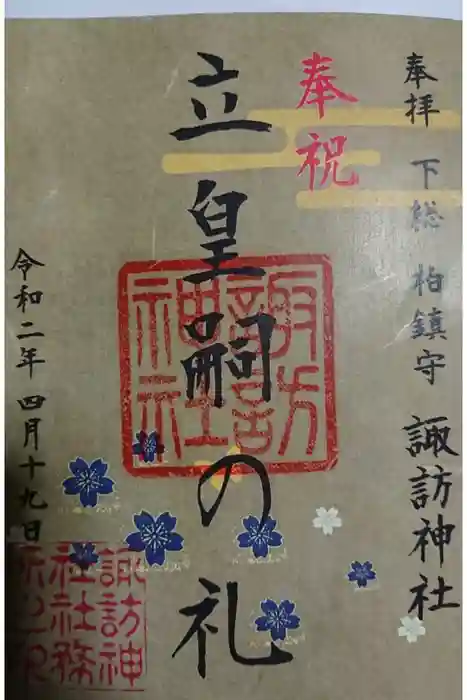 奉拝 下総 柏鎮守 諏訪神社
奉祝
立皇嗣の礼
諏訪神社
令和二年 四月十九日
諏訪神
社社務
所之印